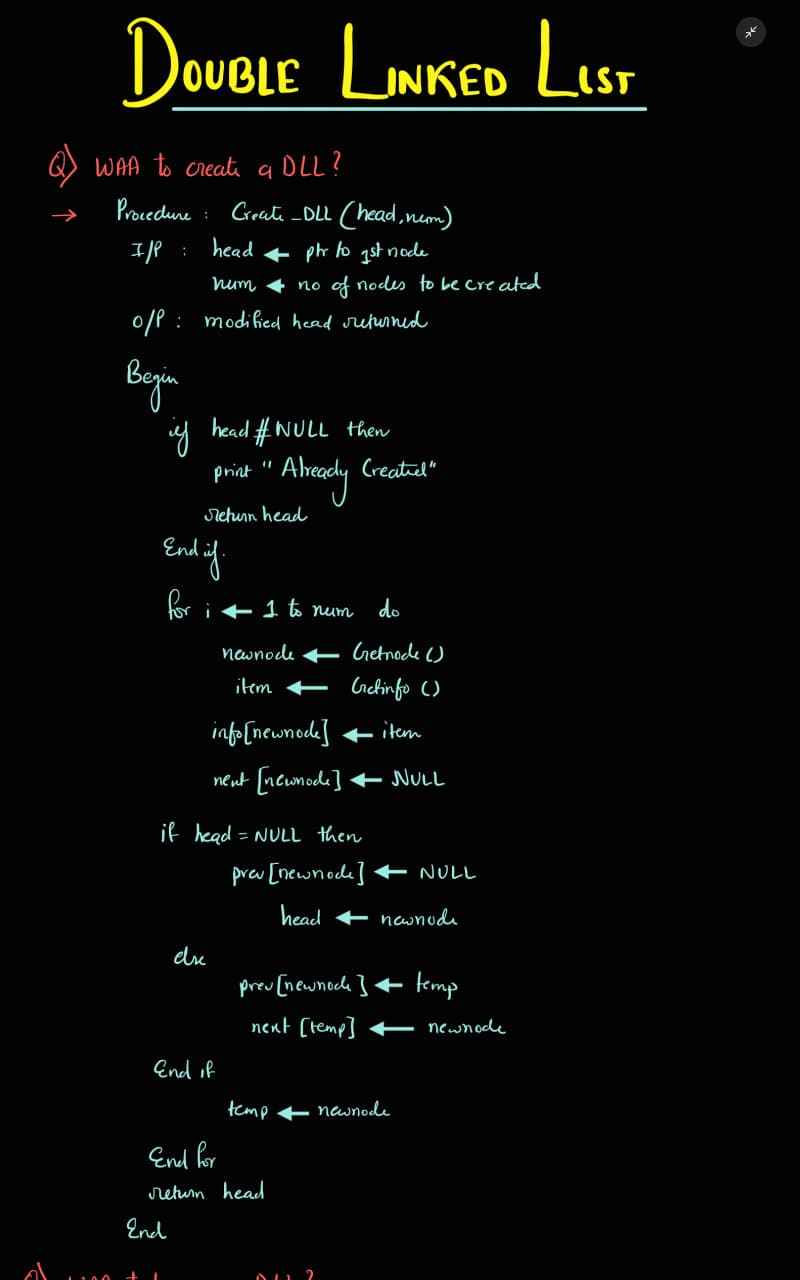 DOUBLE LINKED LIST
Q) WAA to create a DLL?
→ Procedure : Create_DLL (head, num)
I/P : head ← ptr to 1st node
num ← no of nodes to be created
O/P : modified head returned
Begin
if head ≠ NULL then
print "Already Created"
return head
End if.
for i ← 1 to num do
newnode ← Getnode ()
item ← Getinfo ()
info[newnode] ← item
next [newnode] ← NULL
if head = NULL then
prev [newnode] ← NULL
head ← newnode
else
prev[newnode] ← temp
next [temp] ← newnode
End if
temp ← newnode
End for
return head
End